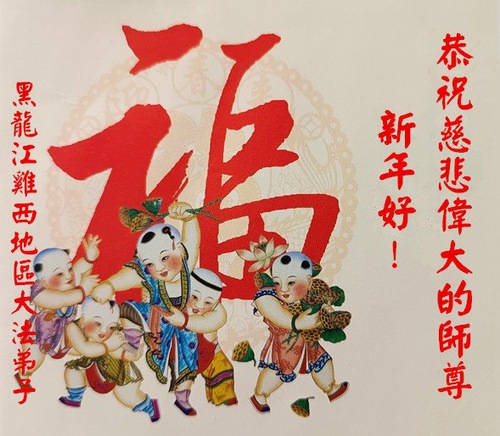 恭祝慈悲偉大的師尊
新年好！
福
黑龍江雞西地區大法弟子